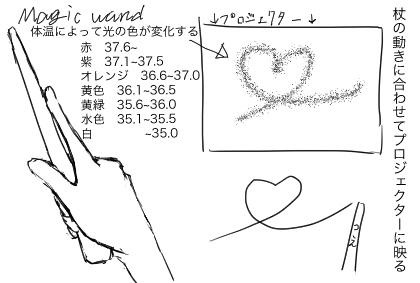 Magic wand
体温によって光の色が変化する
赤 37.6~
紫 37.1~37.5
オレンジ 36.6~37.0
黄色 36.1~36.5
黄緑 35.6~36.0
水色 35.1~35.5
白 ~35.0
↓プロジェクター↓
つえ
杖の動きに合わせてプロジェクターに映る